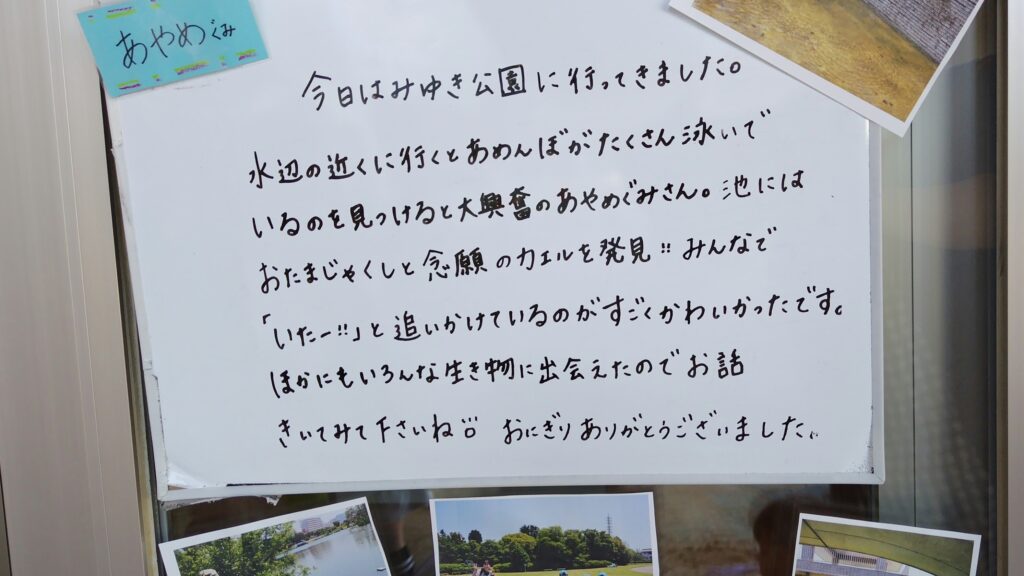 あやめぐみ
今日はみゆき公園に行ってきました。
水辺の近くに行くとあめんぼがたくさん泳いで
いるのを見つけると大興奮のあやめぐみさん。池には
おたまじゃくしと念願のカエルを発見!! みんなで
「いたー!!」と追いかけているのがすごくかわいかったです。
ほかにもいろんな生き物に出会えたのでお話
きいてみて下さいね!! おにぎりありがとうございました。